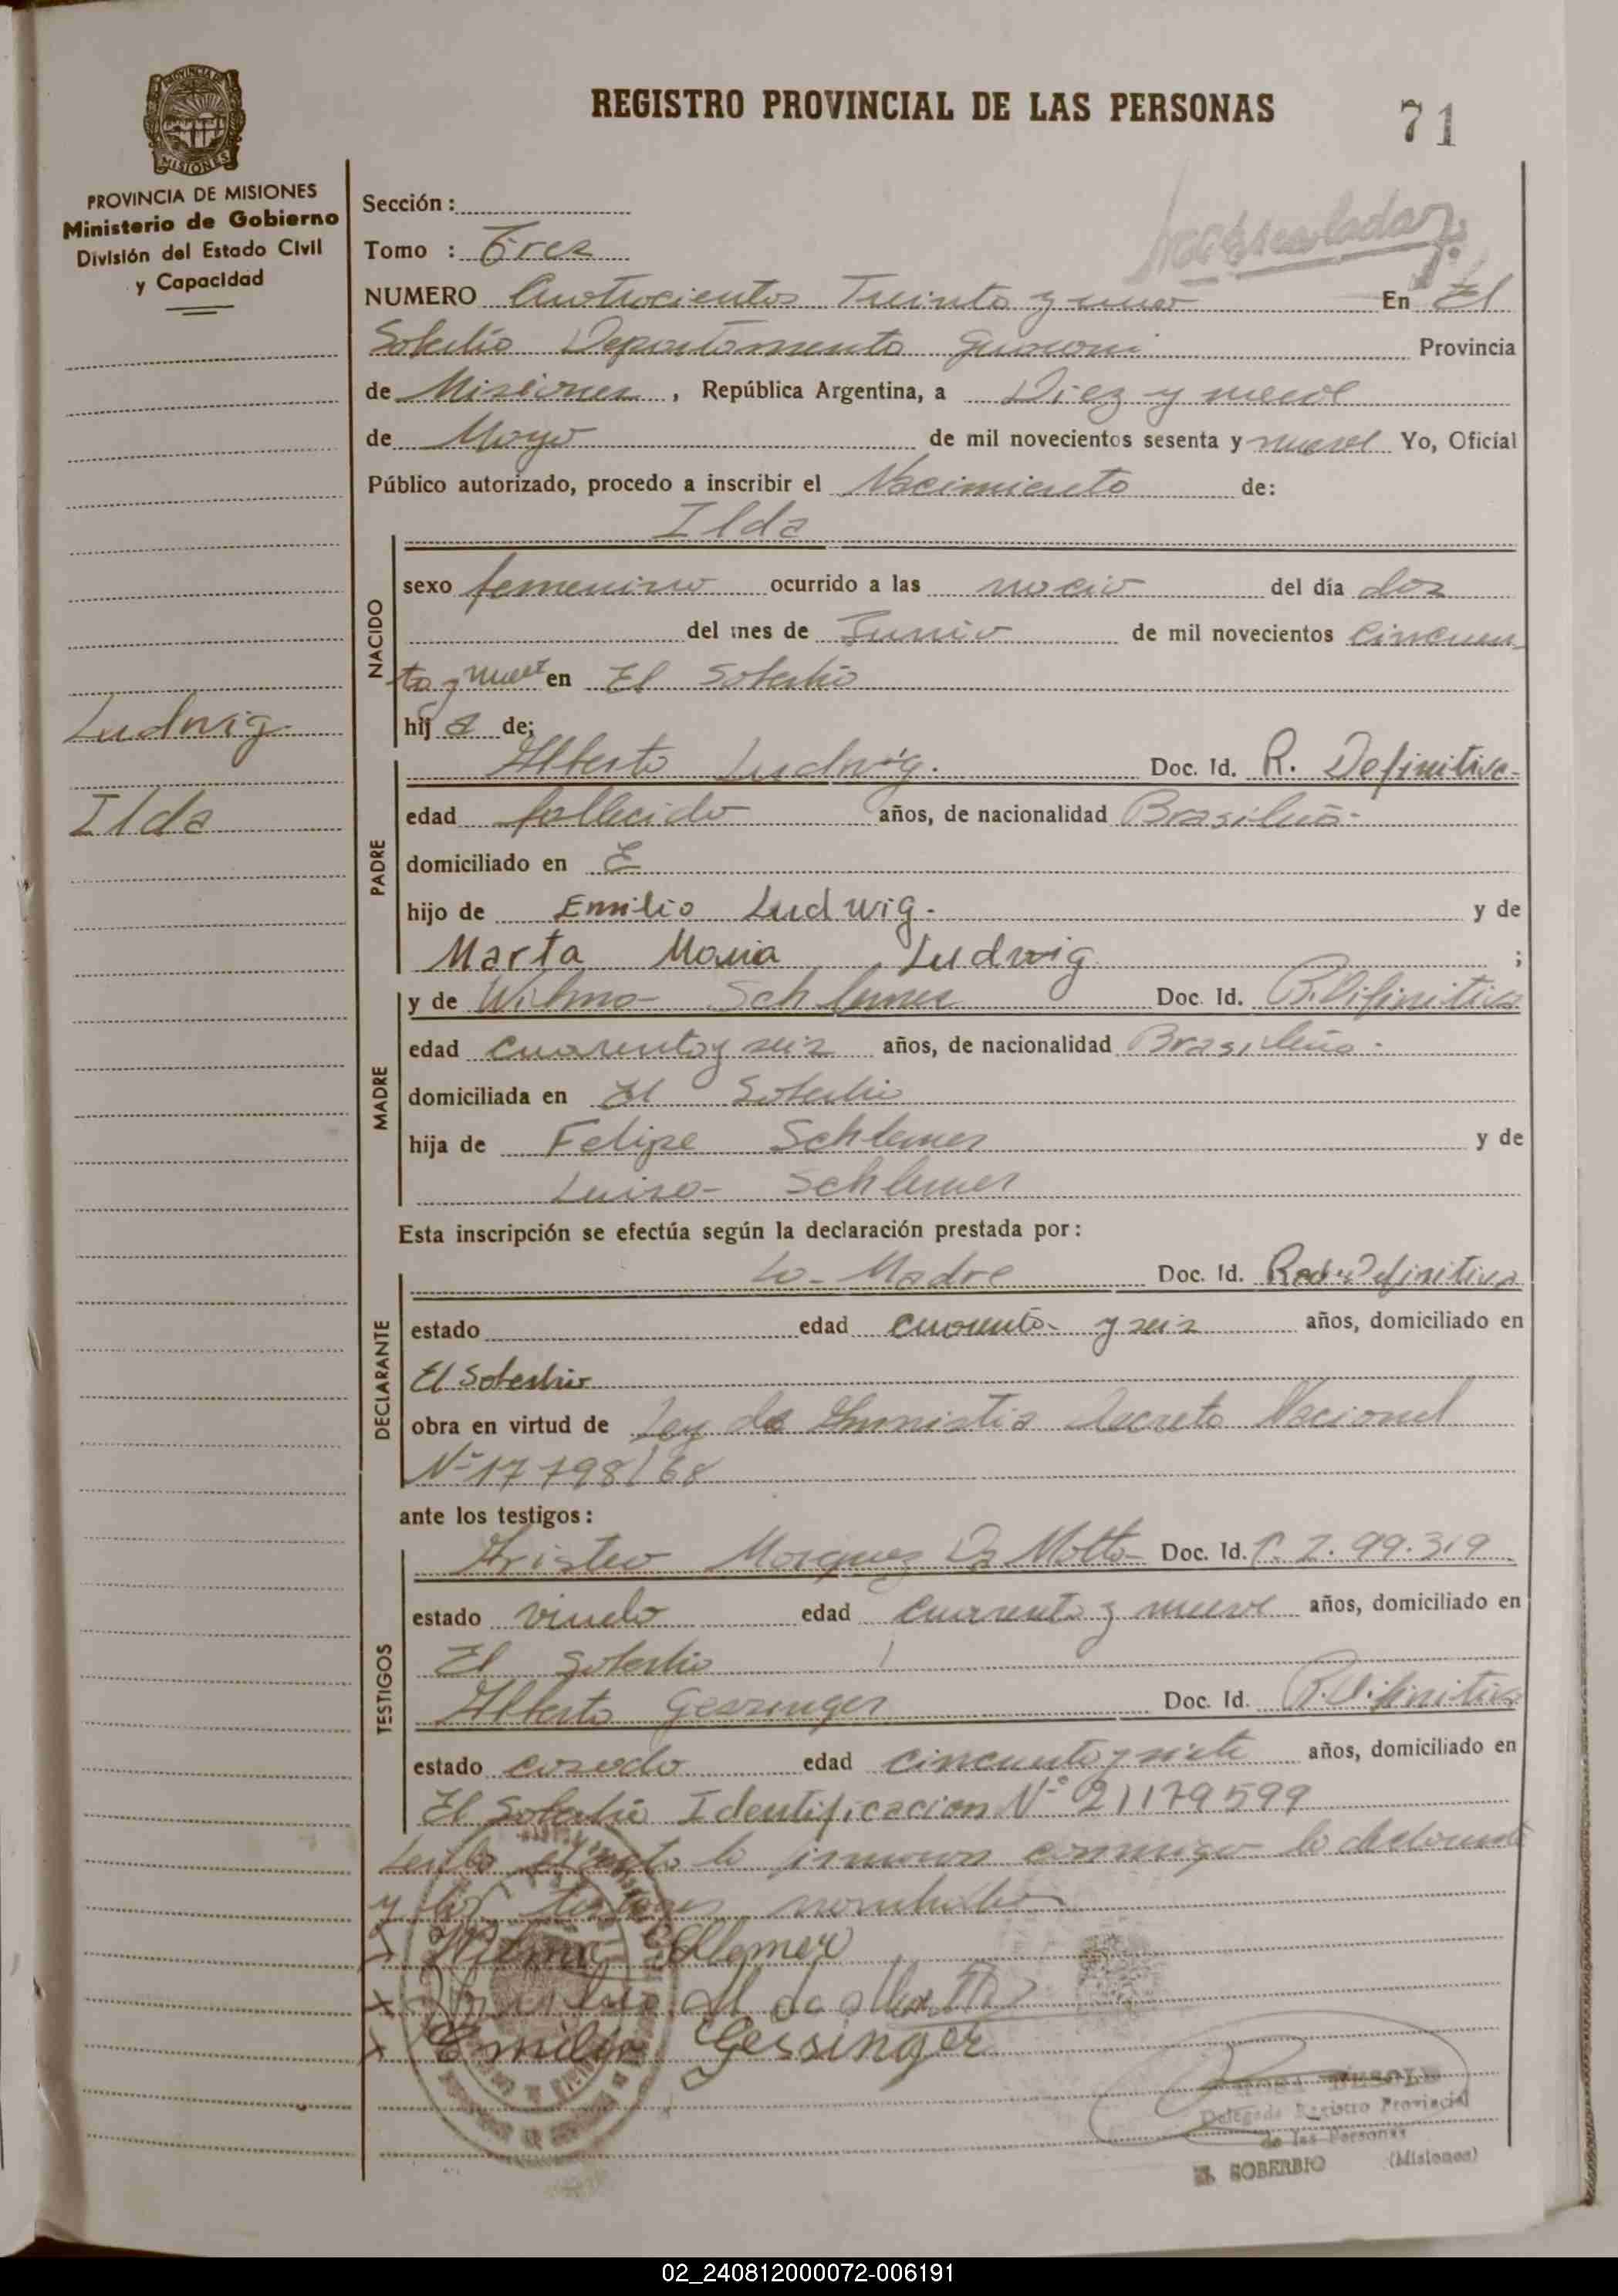 REGISTRO PROVINCIAL DE LAS PERSONAS
71
PROVINCIA DE MISIONES
PROVINCIA DE MISIONES
Ministerio de Gobierno
División del Estado Civil
y Capacidad
Sección :
Tomo : Tres
NUMERO Cuatrocientos Treinta y uno En El
Soberbio Departamento Guarani Provincia
de Misiones , República Argentina, a Diez y nueve
de Mayo de mil novecientos sesenta y nueve Yo, Oficial
Público autorizado, procedo a inscribir el Nacimiento de:
Ilda
NACIDO
sexo femenino ocurrido a las del día dos
del mes de Junio de mil novecientos cincuen
ta y nueve en El Soberbio
hij a de;
Ludwig
Ilda
PADRE
Alberto Ludwig. Doc. Id. R. Definitiva
edad fallecido años, de nacionalidad Brasileña
domiciliado en E
hijo de Emilio Ludwig. y de
Marta Maria Ludwig ;
MADRE
y de Wilma Schlemer Doc. Id. R. Difinitiva
edad cuarenta y seis años, de nacionalidad Brasileña
domiciliada en El Soberbio
hija de Felipe Schlemer y de
Luisa Schlemer
Esta inscripción se efectúa según la declaración prestada por :
DECLARANTE
La Madre Doc. Id. Rad. Definitiva
estado edad cuarenta y seis años, domiciliado en
El Soberbio
obra en virtud de Ley de Amnistia Decreto Nacional
Nº 17798/68
ante los testigos :
TESTIGOS
Aristeo Marques Da Motta Doc. Id. 99.319
estado viudo edad cuarenta y nueve años, domiciliado en
El Soberbio
Alberto Gessinger Doc. Id. R. Difinitiva
estado casado edad cincuenta y siete años, domiciliado en
El Soberbio Identificacion Nº 21179599
Leida el acta la firman conmigo la declarante
y los testigos nombrados
x Wilma Schlemer
x M da Motta
x Emilio Gessinger
Delegada Registro Provincial
de las Personas
EL SOBERBIO (Misiones)
02_240812000072-006191